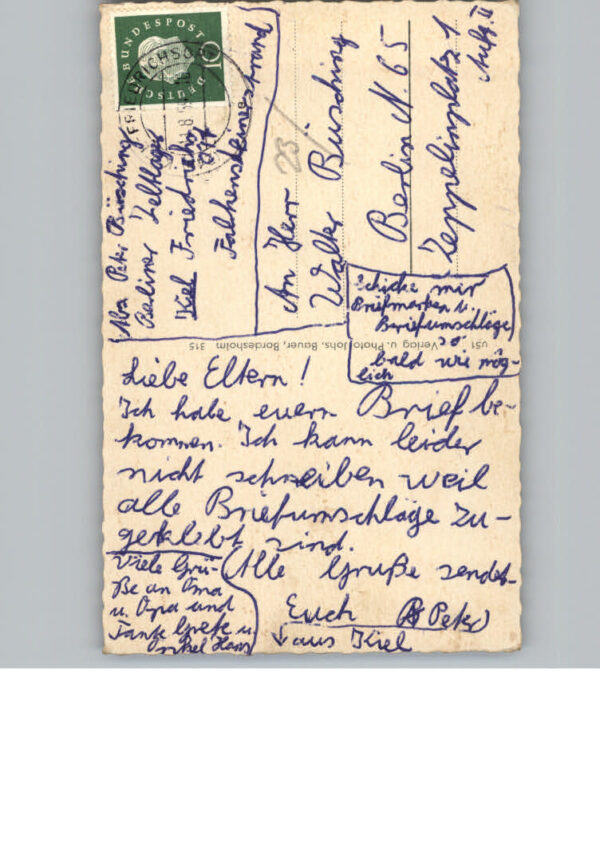 DEUTSCHE BUNDESPOST
10
FRIEDRICHSORT
Abs. Peter Büsching
Berliner Zeltlager
Kiel Friedrichs
ort
Falkensteinerstrand
23
An Herr
Walter Büsching
Berlin N. 65
Zeppelinplatz 1
Aufg. II
Schicke mir
Briefmarken u.
Briefumschläge
so
bald wie mög-
lich
U51 Verlag u. Photo Johs. Bauer, Bordesholm 315
Liebe Eltern!
Ich habe euern Brief be-
kommen. Ich kann leider
nicht schreiben weil
alle Briefumschläge zu-
geklebt sind.
Alle Gruße sendet
Euch Peter
aus Kiel
Viele Grü-
ße an Oma
u. Opa und
Tante Grete u.
Onkel Hans